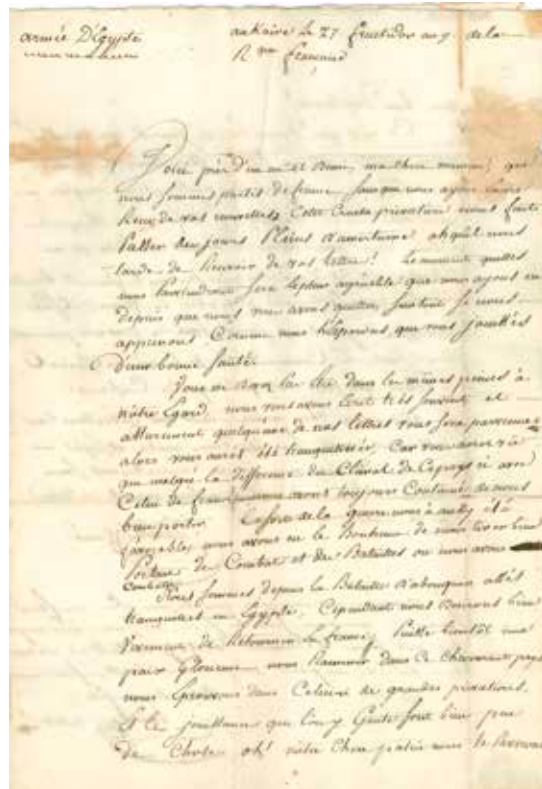 armée D'Égypte
au Kaire le 27 fructidor an 7 de la
R que française
Voici près d'un an et Demi, ma chère maman, que
nous sommes partis de france sans que nous ayons
de vos nouvelles. Cette Cruelle privation nous fait
Passer des jours Pleins d'amertume. oh qu'il nous
tarde de Recevoir de vos lettres! Le moment quelles
nous parviendront sera le plus agréable que nous ayons eu
depuis que nous vous avons quittés, surtout si nous
apprenons Comme nous l'espérons que vous jouissés
d'une bonne santé.
Vous ne dans les mêmes peines à
nôtre Égard, nous vous avons écrit très souvent et
assurement quelqu'une de nos lettres vous sera parvenue
alors vous aurés été tranquilisée, Car vous aurés vu
que malgré la différence du Climat de Ce pays ci avec
Celui de france nous avons toujours Continué de nous
bien porter. Le sort de la guerre nous à aussi été
favorable, nous avons eu le Bonheur de nous tirer bien
de Combats et des Batailles ou nous avons
Nous sommes depuis la Bataille d'abouquir assés
tranquilles en Egypte, Cependant nous Desirons bien
de Retourner en france, Puisse bientôt une
paix Glorieuse nous Ramener dans Ce Charmant pays
nous Éprouvons dans Celui ci de grandes privations,
et les jouissances que l'on y Goute sont bien peu
de Chose. oh! nôtre Chère patrie nous te